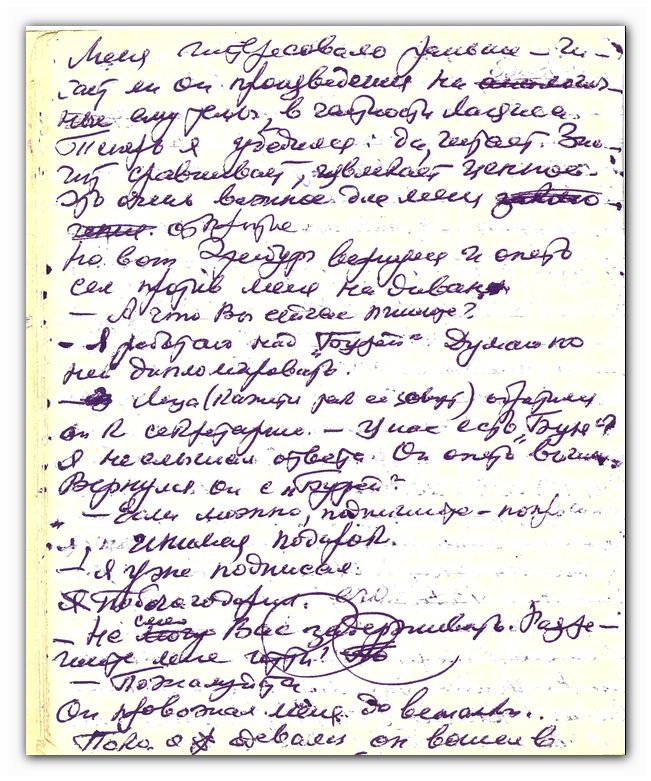 Меня интересовало раньше – чи-
тает ли он произведения на аналогич-
ные ему темы, в частности Лациса.
Теперь я убедился: да, читает. Зна-
чит сравнивает, извлекает ценное.
Это очень важное для меня заклю-
чение. открытие
Но вот Эренбург вернулся и опять
сел против меня на диван.
– А что Вы сейчас пишете?
– Я работаю над "Бурей". Думаю по
ней дипломировать.
– Люца (кажется так ее зовут) обратился
он к секретарше. – У нас есть "Буря"?
Я не слышал ответа. Он опять вышел.
Вернулся он с "Бурей".
– Если можно, подпишите –
я, подарок.
– Я уже подписал.
Я поблагодарил. его
– Не смею могу Вас задерживать. Разре-
шите мне идти!
– Пожалуйста.
Он провожал меня до вешалки.
Пока я одевался, он вошел в